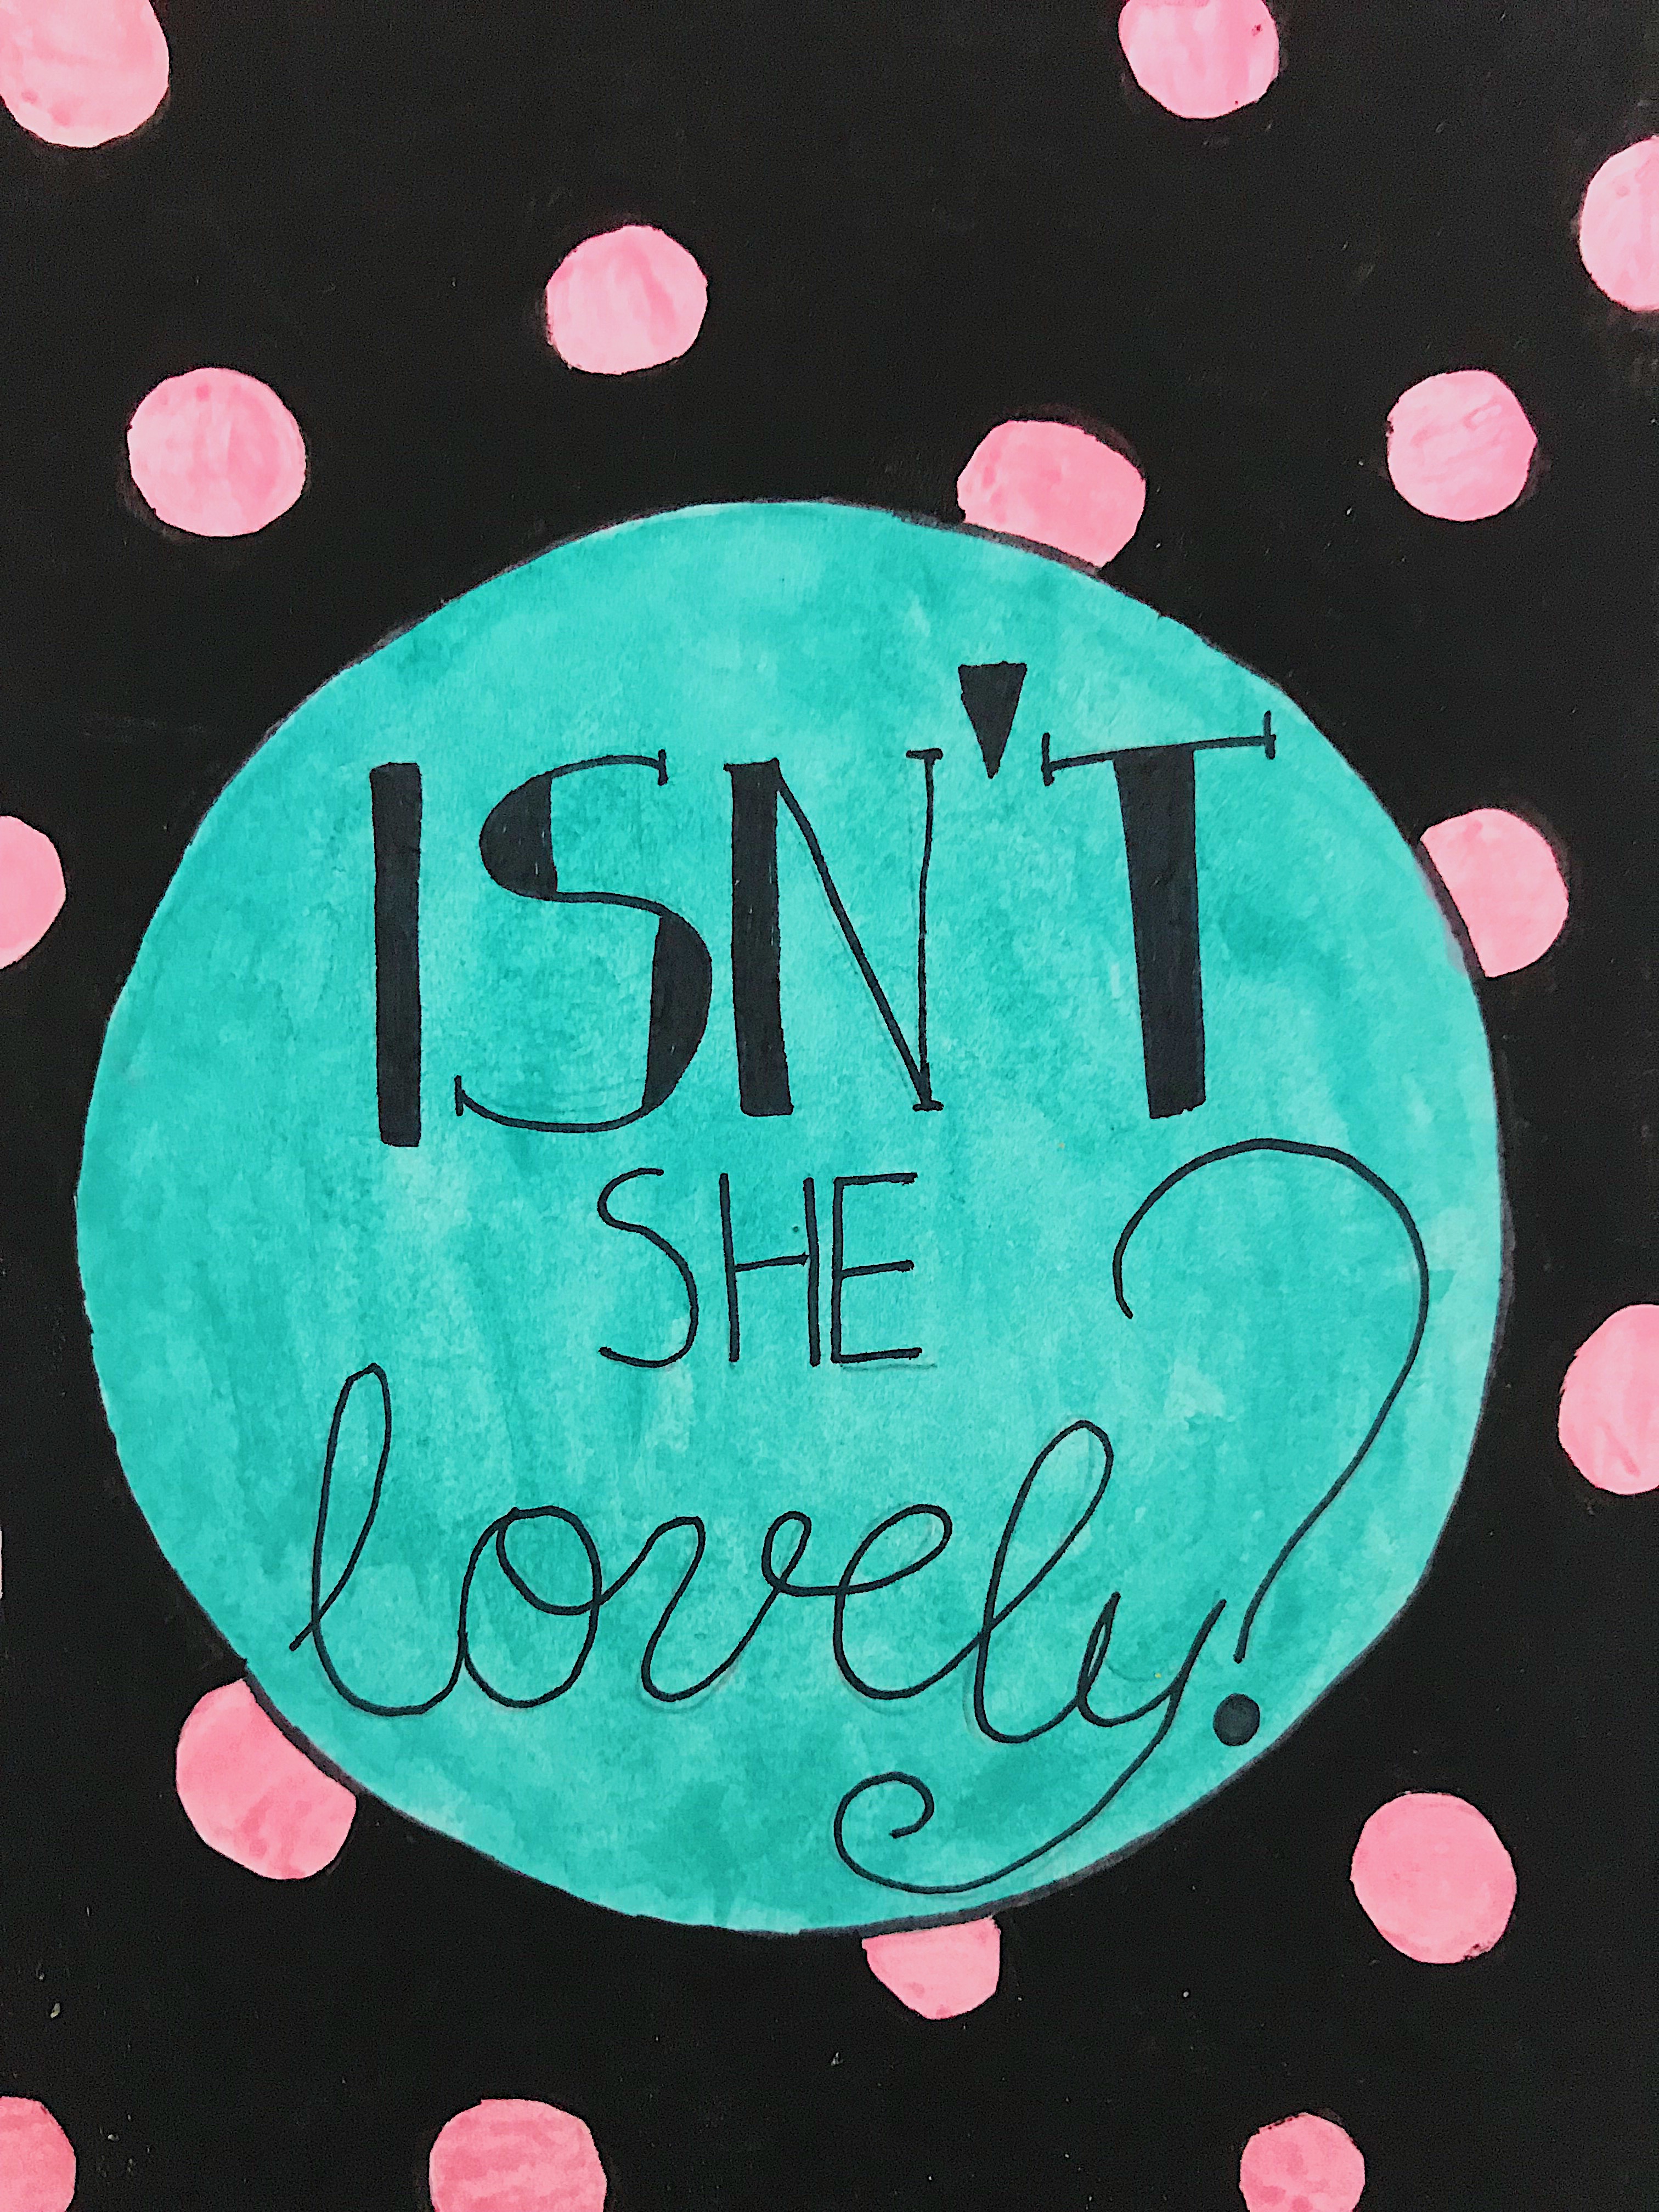 ISN'T
SHE
lovely?